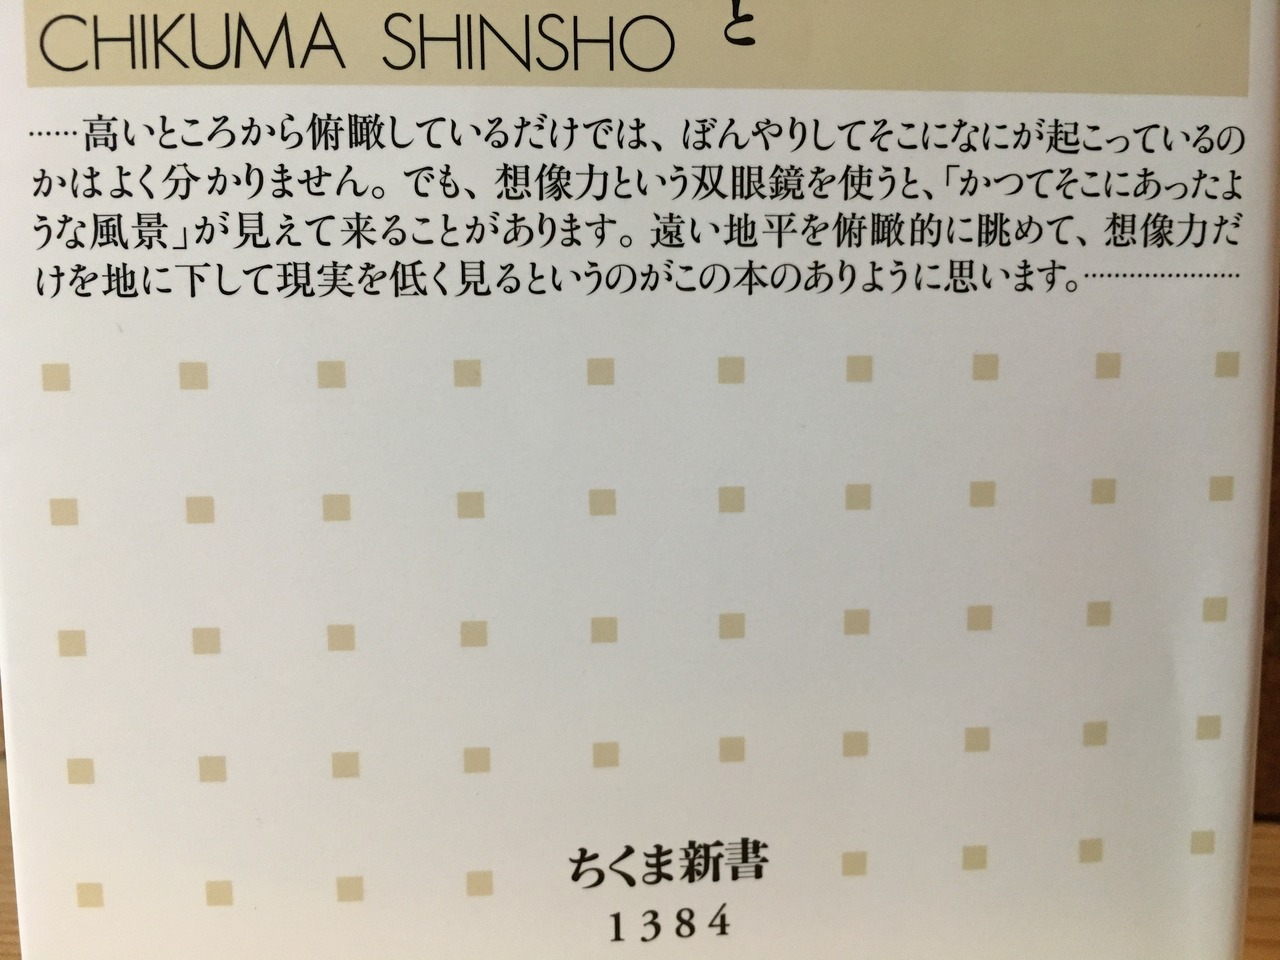 と
CHIKUMA SHINSHO
……高いところから俯瞰しているだけでは、ぼんやりしてそこになにが起こっているの
かはよく分かりません。でも、想像力という双眼鏡を使うと、「かつてそこにあったよ
うな風景」が見えて来ることがあります。遠い地平を俯瞰的に眺めて、想像力だ
けを地に下して現実を低く見るというのがこの本のありように思います。…………………
ちくま新書
1384